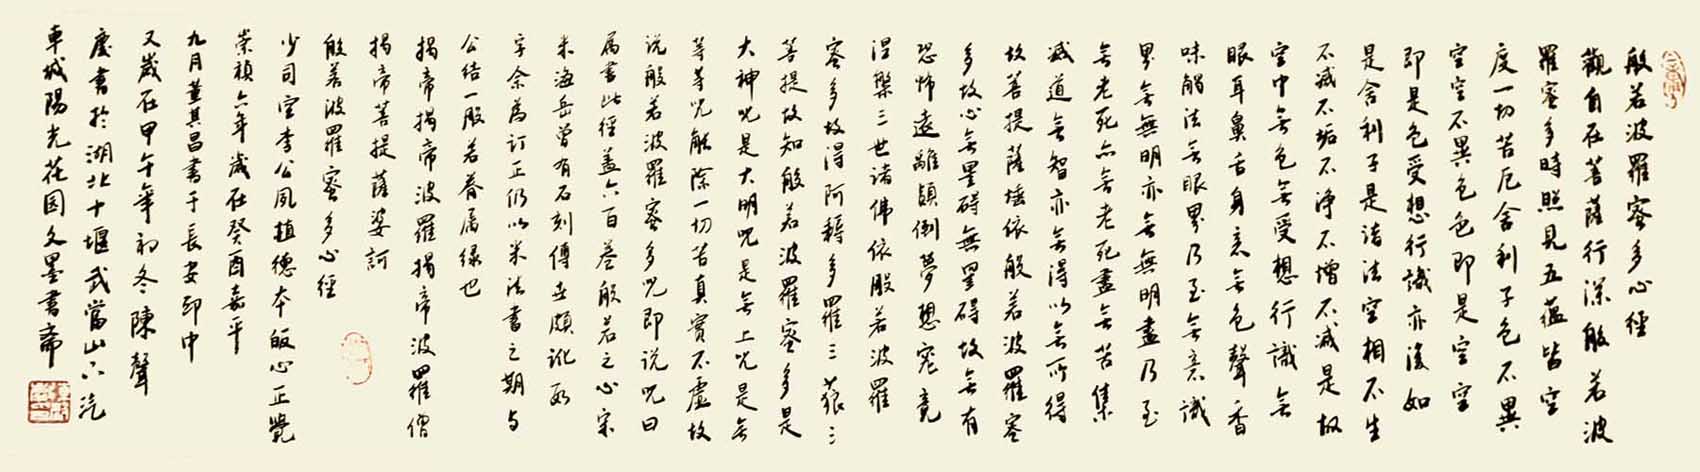 般若波羅蜜多心經
觀自在菩薩行深般若波
羅蜜多時照見五蘊皆空
度一切苦厄舍利子色不異
空空不異色色即是空空
即是色受想行識亦復如
是舍利子是諸法空相不生
不滅不垢不淨不增不減是故
空中無色無受想行識無
眼耳鼻舌身意無色聲香
味觸法無眼界乃至無意識
界無無明亦無無明盡乃至
無老死亦無老死盡無苦集
滅道無智亦無得以無所得
故菩提薩埵依般若波羅蜜
多故心無罣碍無罣碍故無有
恐怖遠離顛倒夢想究竟
涅槃三世諸佛依般若波羅
蜜多故得阿耨多羅三藐三
菩提故知般若波羅蜜多是
大神咒是大明咒是無上咒是無
等等咒能除一切苦真實不虛故
说般若波羅蜜多咒即说咒曰
属書此經蓋六百卷般若之心宗
米海岳曾有石刻傳世頗訛
字余為訂正仍以米法書之期与
公结一般若眷属缘也
揭帝揭帝波羅揭帝波羅僧
揭帝菩提薩婆訶
般若波羅蜜多心經
少司空李公夙植德本皈心正覺
崇禎六年歲在癸酉嘉平
九月董其昌書于長安邸中
又歲在甲午年初冬陳聲
慶書於湖北十堰武當山下汽
車城陽光花园文墨書齋